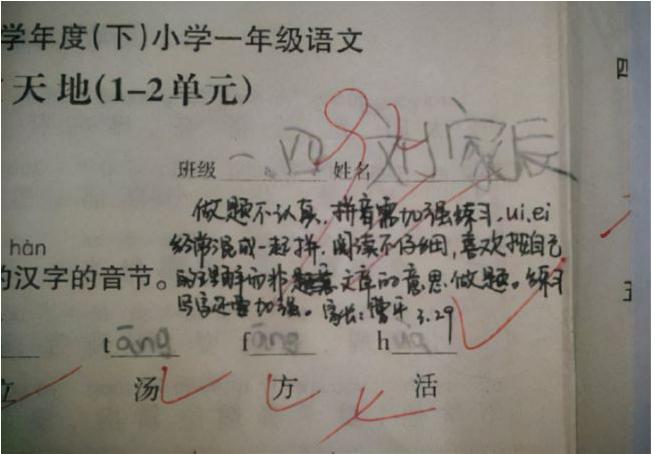 学年度(下)小学一年级语文
天地(1-2单元)
四
班级 一.四 姓名 刘家辰
做题不认真,拼音需加强练习,ui.ei
经常混成一起拼,阅读不仔细,喜欢按自己
的理解而非文章的意思做题。练习
写字还要加强。家长:曾平 3.29
hàn
的汉字的音节。
tāng fāng h
立 汤 方 活